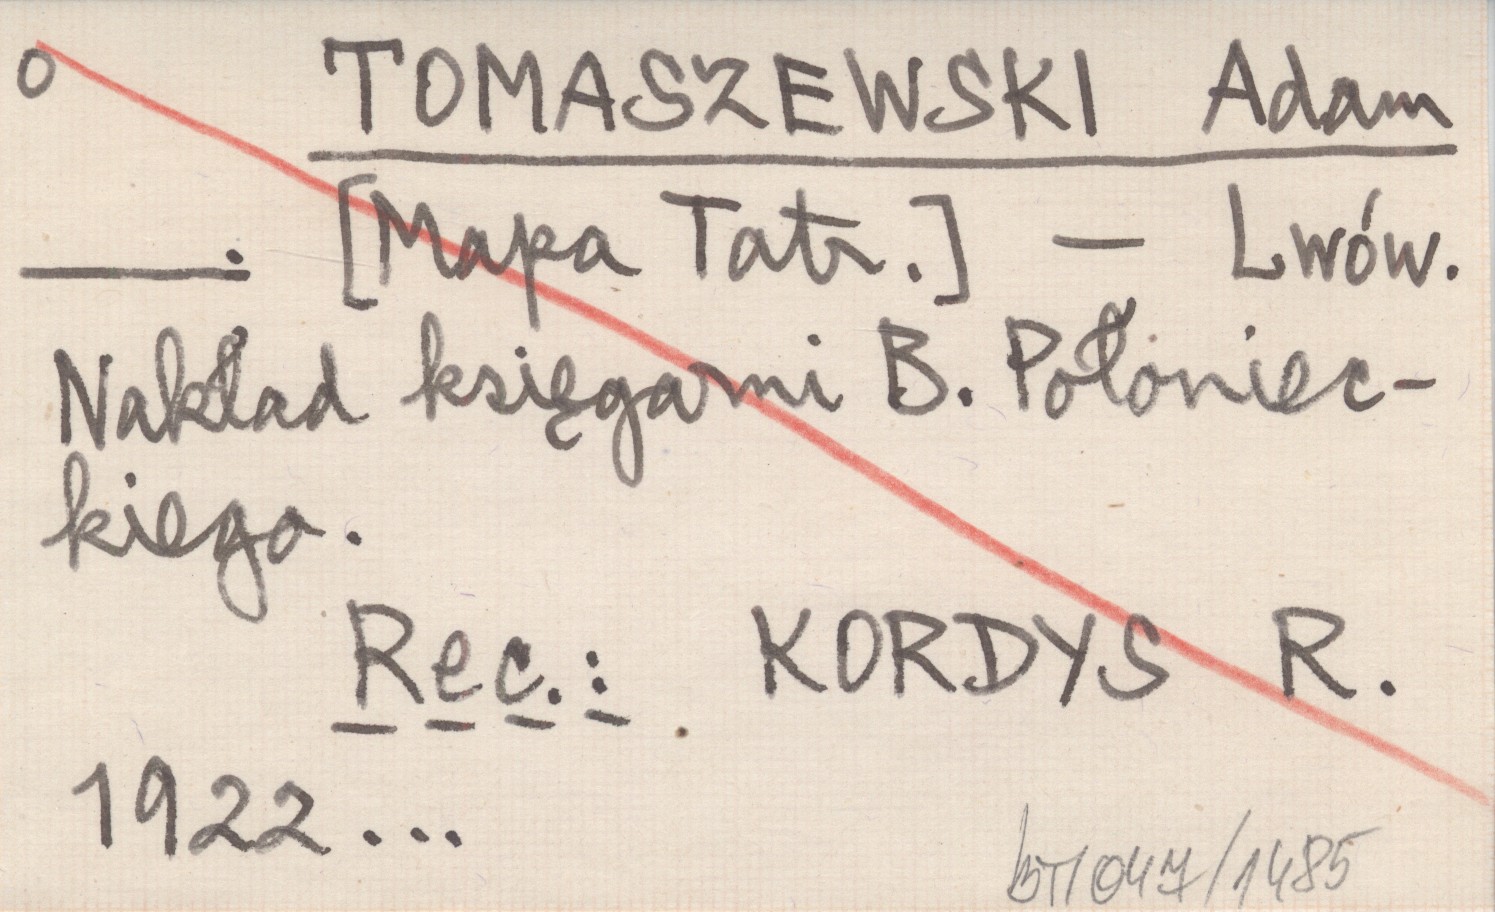 o TOMASZEWSKI Adam
———. [Mapa Tatr.] — Lwów.
Nakład księgarni B. Połoniec-
kiego.
Rec.: KORDYS R.
1922...
BT/047/1485